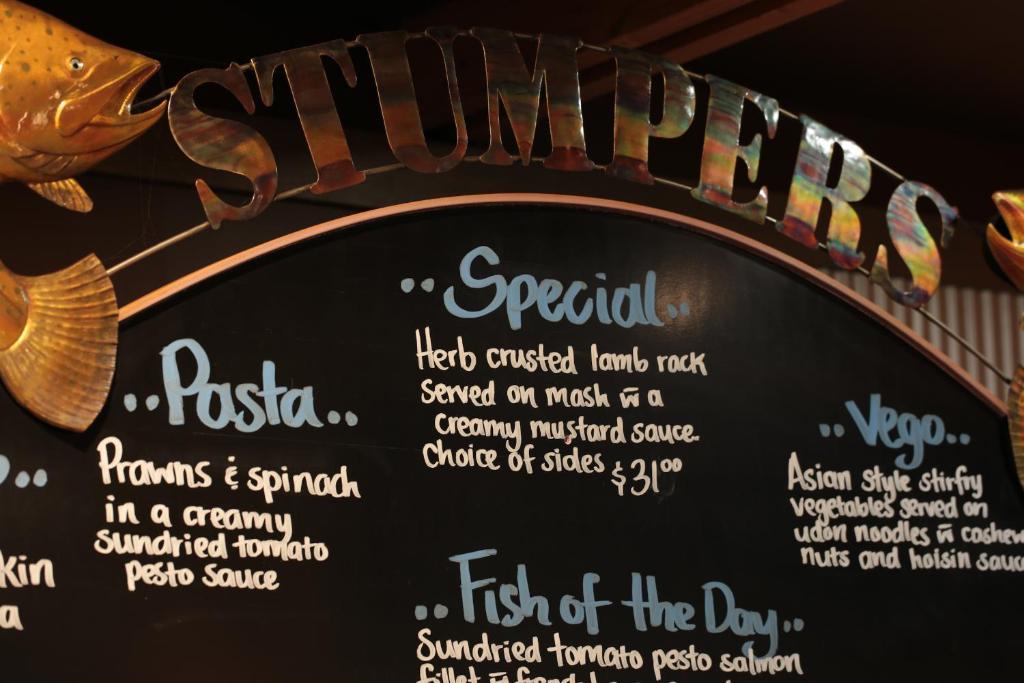 STUMPERS
..Special..
Herb crusted lamb rack
Served on mash w̄ a
creamy mustard sauce.
Choice of sides $31⁰⁰
..Pasta..
Prawns & spinach
in a creamy
sundried tomato
pesto sauce
..Vego..
Asian style stirfry
vegetables served on
udon noodles w̄ cashew
nuts and hoisin sauce
kin
a
..Fish of the Day..
Sundried tomato pesto salmon
fillet w̄